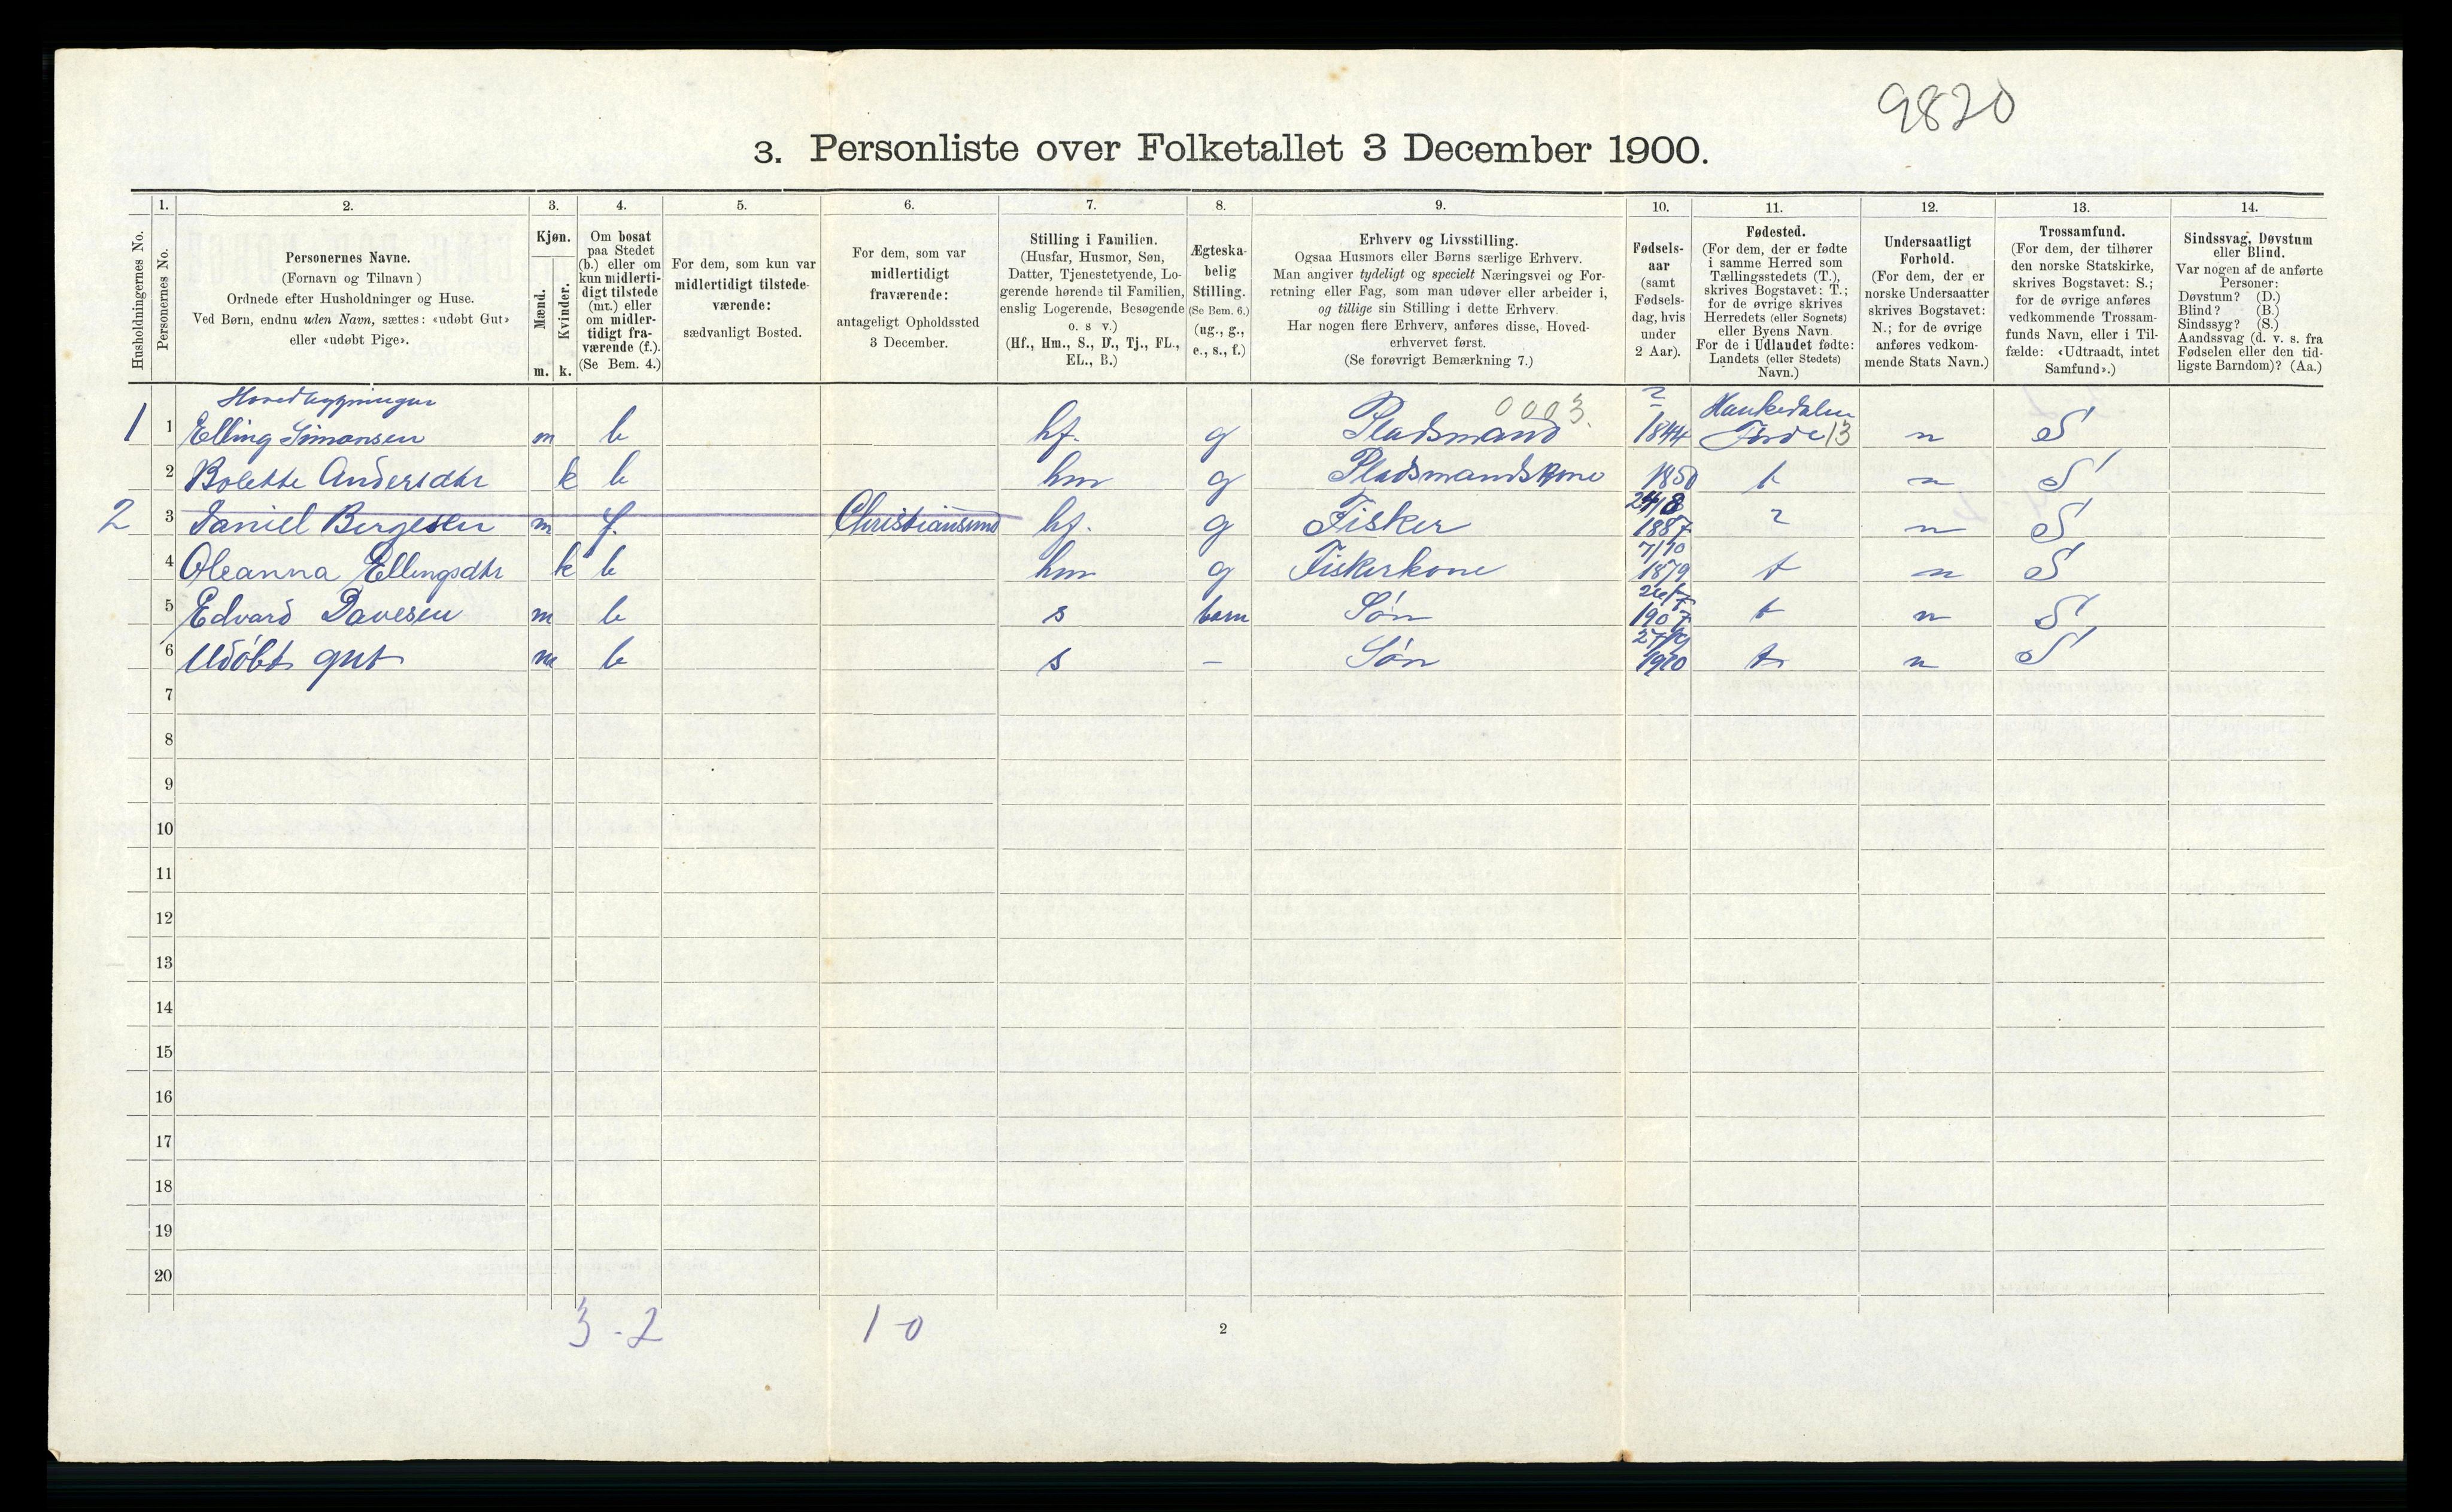 9820
3. Personliste over Folketallet 3 December 1900.
1. 2. 3. 4. 5. 6. 7. 8. 9. 10. 11. 12. 13. 14.
Husholdningernes No.
Personernes No.
Personernes Navne.
(Fornavn og Tilnavn)
Ordnede efter Husholdninger og Huse.
Ved Børn, endnu uden Navn, sættes: «udøbt Gut»
eller «udøbt Pige».
Kjøn.
Mænd.
Kvinder.
m. k.
Om bosat
paa Stedet
(b.) eller om
kun midlerti-
digt tilstede
(mt.) eller
om midler-
tidigt fra-
værende (f.).
(Se Bem. 4.)
For dem, som kun var
midlertidigt tilstede-
værende:
sædvanligt Bosted.
For dem, som var
midlertidigt
fraværende:
antageligt Opholdssted
3 December.
Stilling i Familien.
(Husfar, Husmor, Søn,
Datter, Tjenestetyende, Lo-
gerende hørende til Familien,
enslig Logerende, Besøgende
o. s v.)
(Hf., Hm., S., D., Tj., FL.,
EL., B.)
Ægteska-
belig
Stilling.
(Se Bem. 6.)
(ug., g.,
e., s., f.)
Erhverv og Livsstilling.
Ogsaa Husmors eller Børns særlige Erhverv.
Man angiver tydeligt og specielt Næringsvei og For-
retning eller Fag, som man udøver eller arbeider i,
og tillige sin Stilling i dette Erhverv.
Har nogen flere Erhverv, anføres disse, Hoved-
erhvervet først.
(Se forøvrigt Bemærkning 7.)
Fødsels-
aar
(samt
Fødsels-
dag, hvis
under
2 Aar).
Fødested.
(For dem, der er fødte
i samme Herred som
Tællingsstedets (T.),
skrives Bogstavet: T.;
for de øvrige skrives
Herredets (eller Sognets)
eller Byens Navn.
For de i Udlaudet fødte:
Landets (eller Stedets)
Navn.)
Undersaatligt
Forhold.
(For dem, der er
norske Undersaatter
skrives Bogstavet:
N.; for de øvrige
anføres vedkom-
mende Stats Navn.)
Trossamfund.
(For dem, der tilhører
den norske Statskirke,
skrives Bogstavet: S.;
for de øvrige anføres
vedkommende Trossam-
funds Navn, eller i Til-
fælde: «Udtraadt, intet
Samfund».)
Sindssvag, Døvstum
eller Blind.
Var nogen af de anførte
Personer:
Døvstum? (D.)
Blind? (B.)
Sindssyg? (S.)
Aandssvag (d. v. s. fra
Fødselen eller den tid-
ligste Barndom)? (Aa.)
Hovedbygningen 0003. ? Haukedalen
1 1 Elling Simonsen m b hf. g Pladsmand 1844 Førde 13 n S
2 Bolette Andersdtr k b hm g Pladsmandskone 1850 t n S
2 3 Daniel Bergesen m f. Christiansund hf. g Fisker n S
4 Oleanna Ellingsdtr k b hm g Fiskerkone 1879 t n S
5 Edvard m b s barn Søn t n S
6 Udøbt gut m b s – Søn t n S
7
8
9
10
11
12
13
14
15
16
17
18
19
20
3 - 2 1 - 0
2